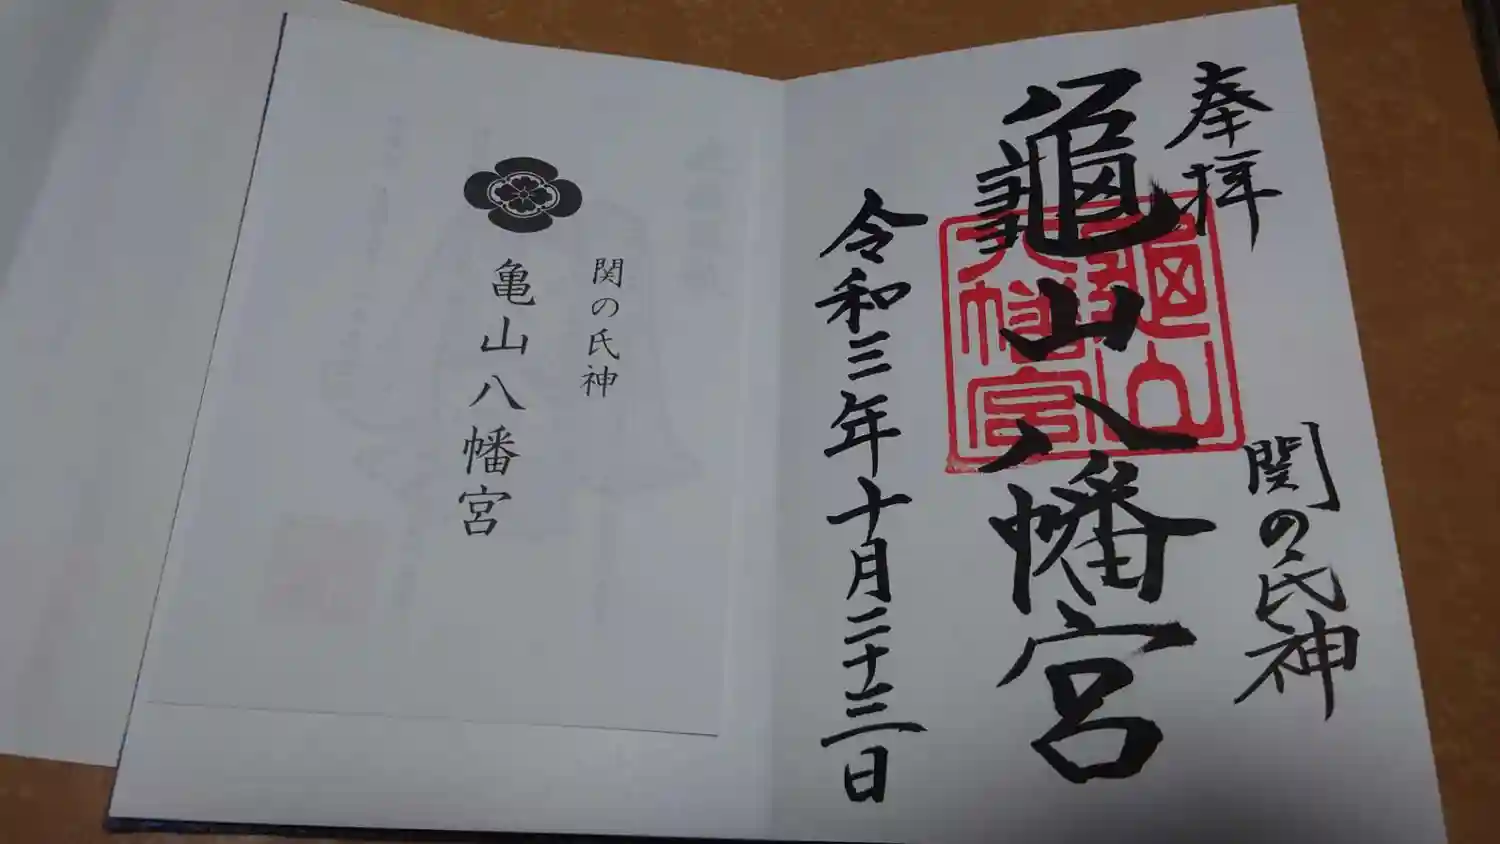 奉拝
関の氏神
龜山八幡宮
龜山
八幡宮
令和三年十月二十三日
関の氏神
亀山八幡宮